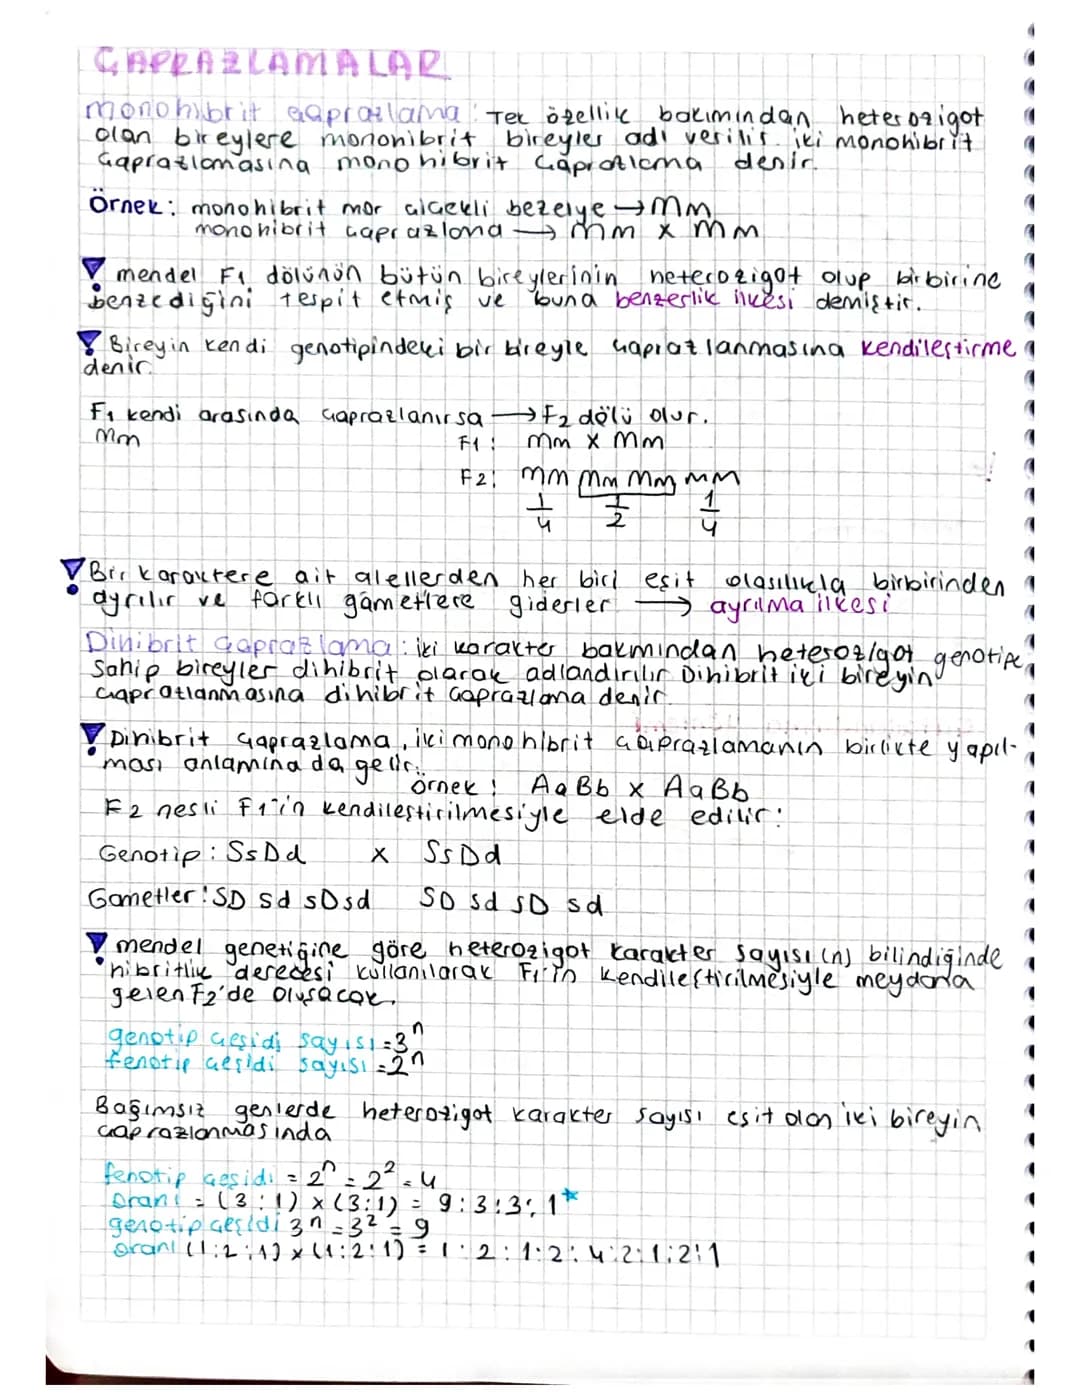 ÇAPRAZLAMALAR
monohibrit çaprazlama: Tek özellik bakımından heterozigot
olan bireylere monohibrit bireyler adı verilir. iki monohibrit
çaprazlamasına monohibrit çaprazlama denir.
Örnek: monohibrit mor çiçekli bezelye → Mm
monohibrit çaprazlama → Mm x Mm
mendel F1 dölünün bütün bireylerinin heterozigot olup birbirine
benzediğini tespit etmiş ve buna benzerlik ilkesi demiştir.
Bireyin kendi genotipindeki bir bireyle çaprazlanmasına kendileştirme
denir.
F1 kendi arasında çaprazlanırsa → F2 dölü olur.
Mm F1: Mm x Mm
F2: MM Mm Mm mm
1/4 1/2 1/4
Bir karaktere ait alellerden her biri eşit olasılıkla birbirinden
ayrılır ve farklı gametlere giderler → ayrılma ilkesi
Dihibrit çaprazlama: iki karakter bakımından heterozigot genotipe
sahip bireyler dihibrit olarak adlandırılır Dihibrit iki bireyin
çaprazlanmasına dihibrit çaprazlama denir.
Dihibrit çaprazlama, iki monohibrit çaprazlamanın birlikte yapıl-
ması anlamına da gelir.
örnek: AaBb x AaBb
F2 nesli F1'in kendileştirilmesiyle elde edilir:
Genotip: SsDd x SsDd
Gametler: SD Sd sD sd SD Sd sD sd
mendel genetiğine göre heterozigot karakter sayısı (n) bilindiğinde
hibritlik derecesi kullanılarak F1'in kendileştirilmesiyle meydana
gelen F2'de oluşacak.
genotip çeşidi sayısı = 3ⁿ
fenotip çeşidi sayısı = 2ⁿ
Bağımsız genlerde heterozigot karakter sayısı eşit olan iki bireyin
çaprazlanmasında
fenotip çeşidi = 2ⁿ = 2² = 4
oranı = (3:1) x (3:1) = 9:3:3:1*
genotip çeşidi 3ⁿ = 3² = 9
oranı (1:2:1) x (1:2:1) = 1:2:1:2:4:2:1:2:1